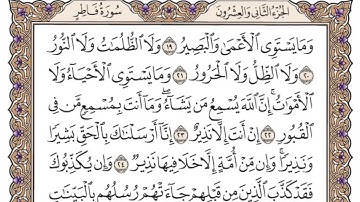 الجزء الثاني والعشرون سورة فاطر
وَمَا يَسْتَوِي الْأَعْمَىٰ وَالْبَصِيرُ ١٩ وَلَا الظُّلُمَٰتُ وَلَا النُّورُ
٢٠ وَلَا الظِّلُّ وَلَا الْحَرُورُ ٢١ وَمَا يَسْتَوِي الْأَحْيَاءُ وَلَا
الْأَمْوَٰتُ إِنَّ اللَّهَ يُسْمِعُ مَن يَشَاءُ وَمَا أَنتَ بِمُسْمِعٍ مَّن فِي
الْقُبُورِ ٢٢ إِنْ أَنتَ إِلَّا نَذِيرٌ ٢٣ إِنَّا أَرْسَلْنَٰكَ بِالْحَقِّ بَشِيرًا
وَنَذِيرًا وَإِن مِّنْ أُمَّةٍ إِلَّا خَلَا فِيهَا نَذِيرٌ ٢٤ وَإِن يُكَذِّبُوكَ
فَقَدْ كَذَّبَ الَّذِينَ مِن قَبْلِهِمْ جَاءَتْهُمْ رُسُلُهُم بِالْبَيِّنَٰتِ